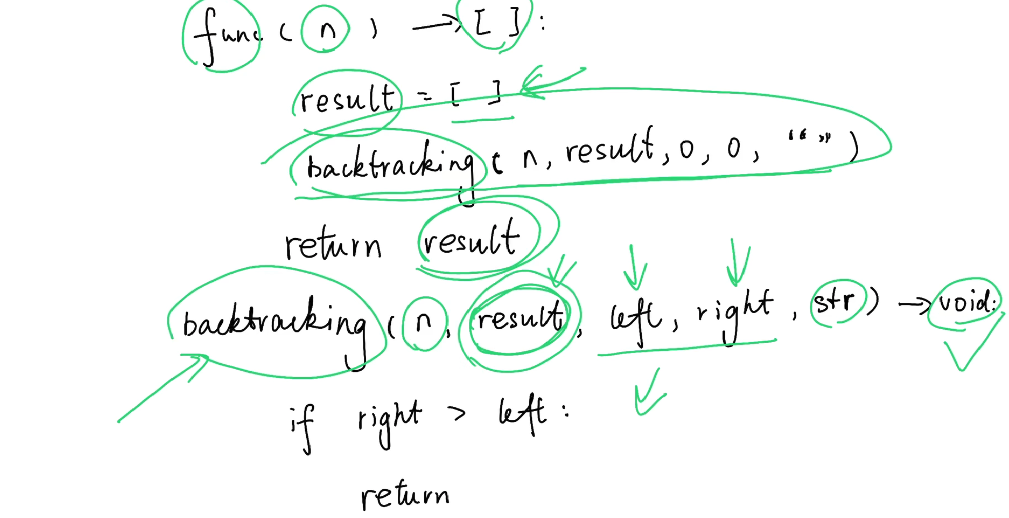 func ( n ) → [ ] :
result = [ ]
backtracking ( n, result, 0, 0, “ ” )
return result
backtracking ( n, result, left, right, str ) → void:
if right > left :
return